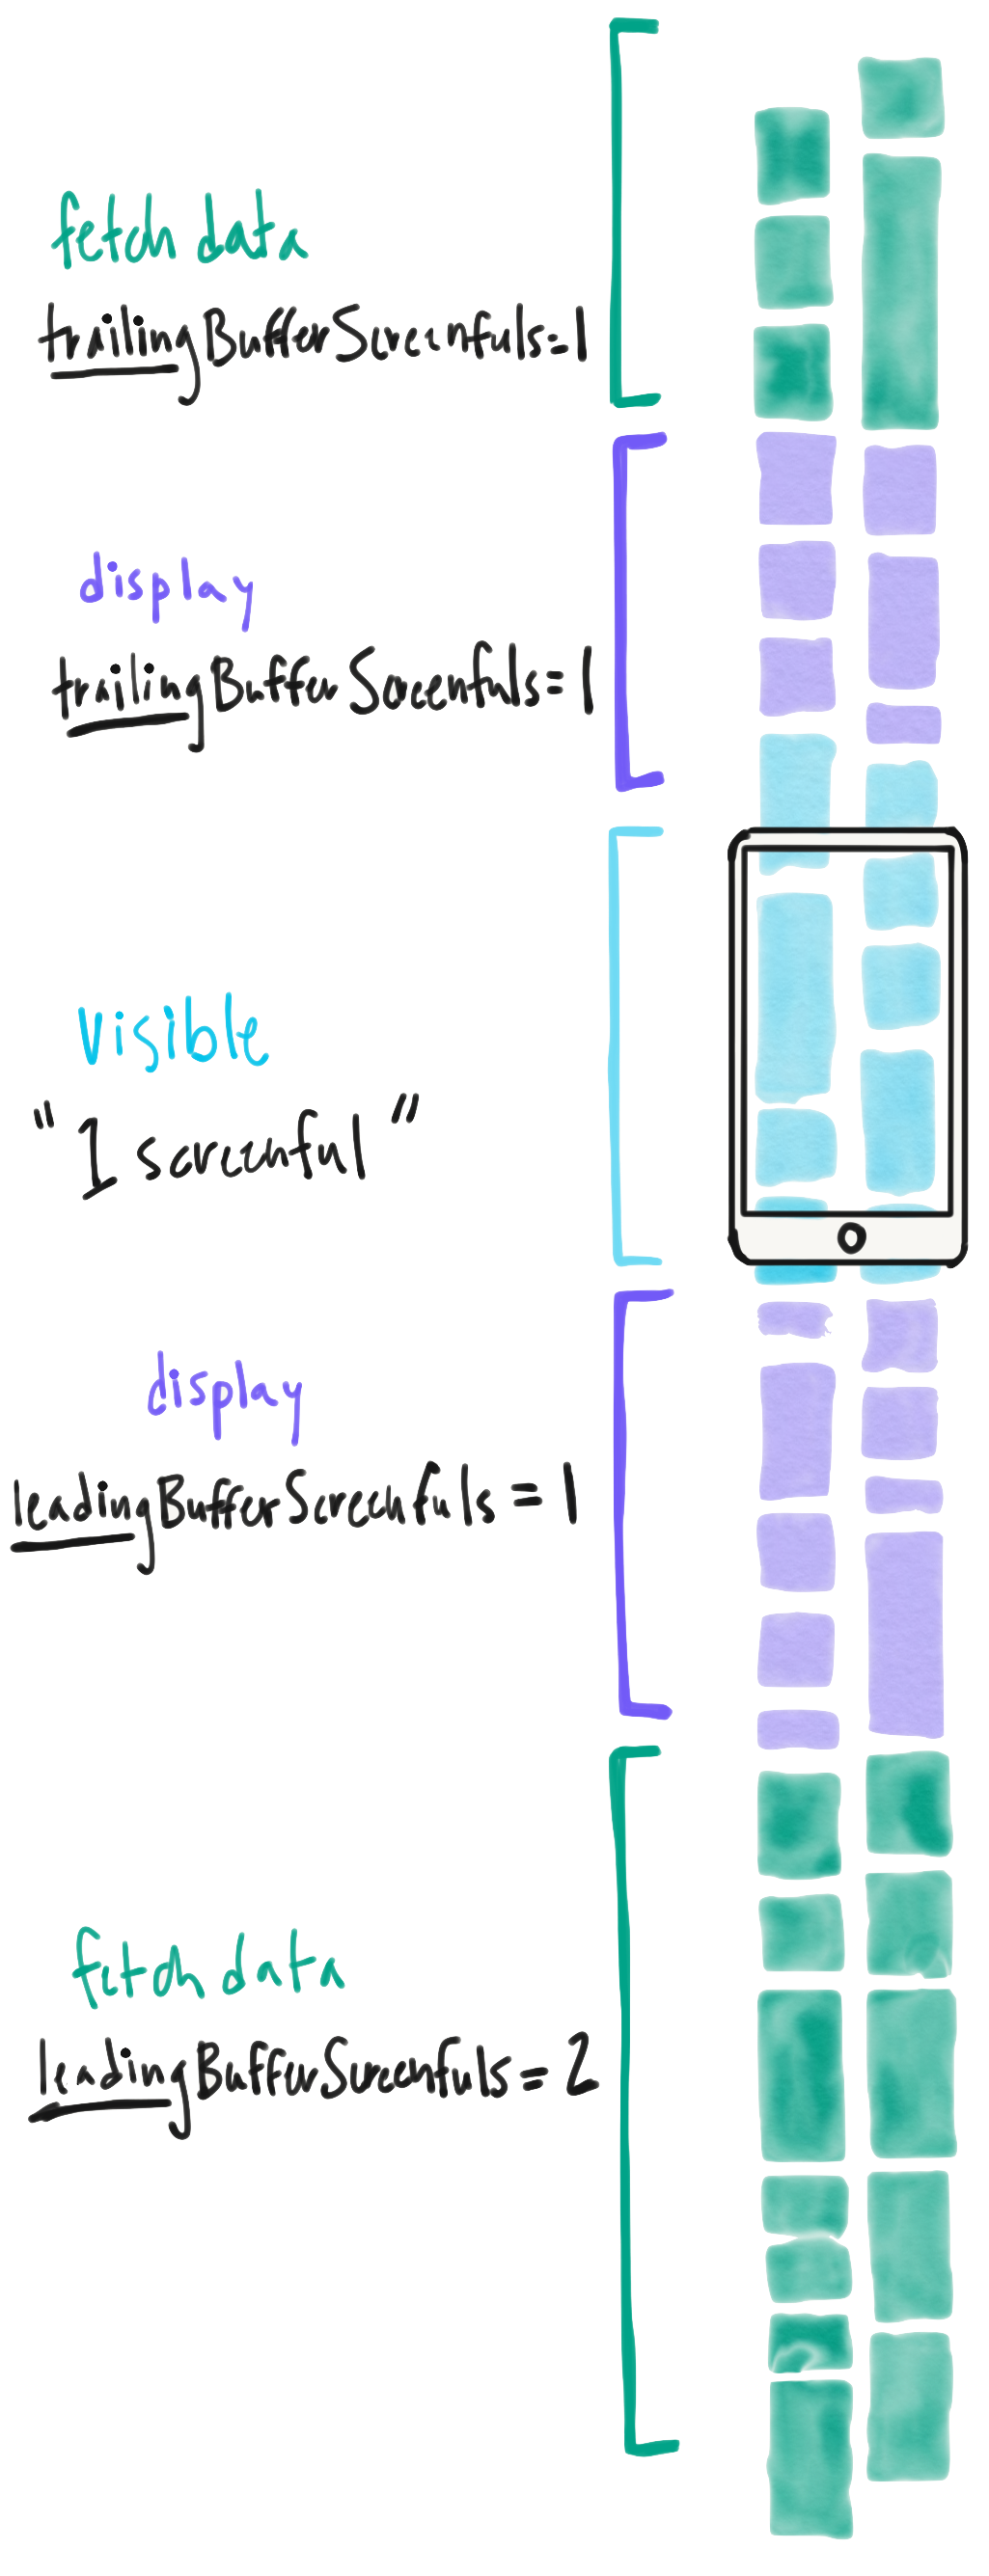 fetch data
trailingBufferScreenfuls=1
display
trailingBufferScreenfuls=1
visible
"1 screenful"
display
leadingBufferScreenfuls = 1
fetch data
leadingBufferScreenfuls = 2